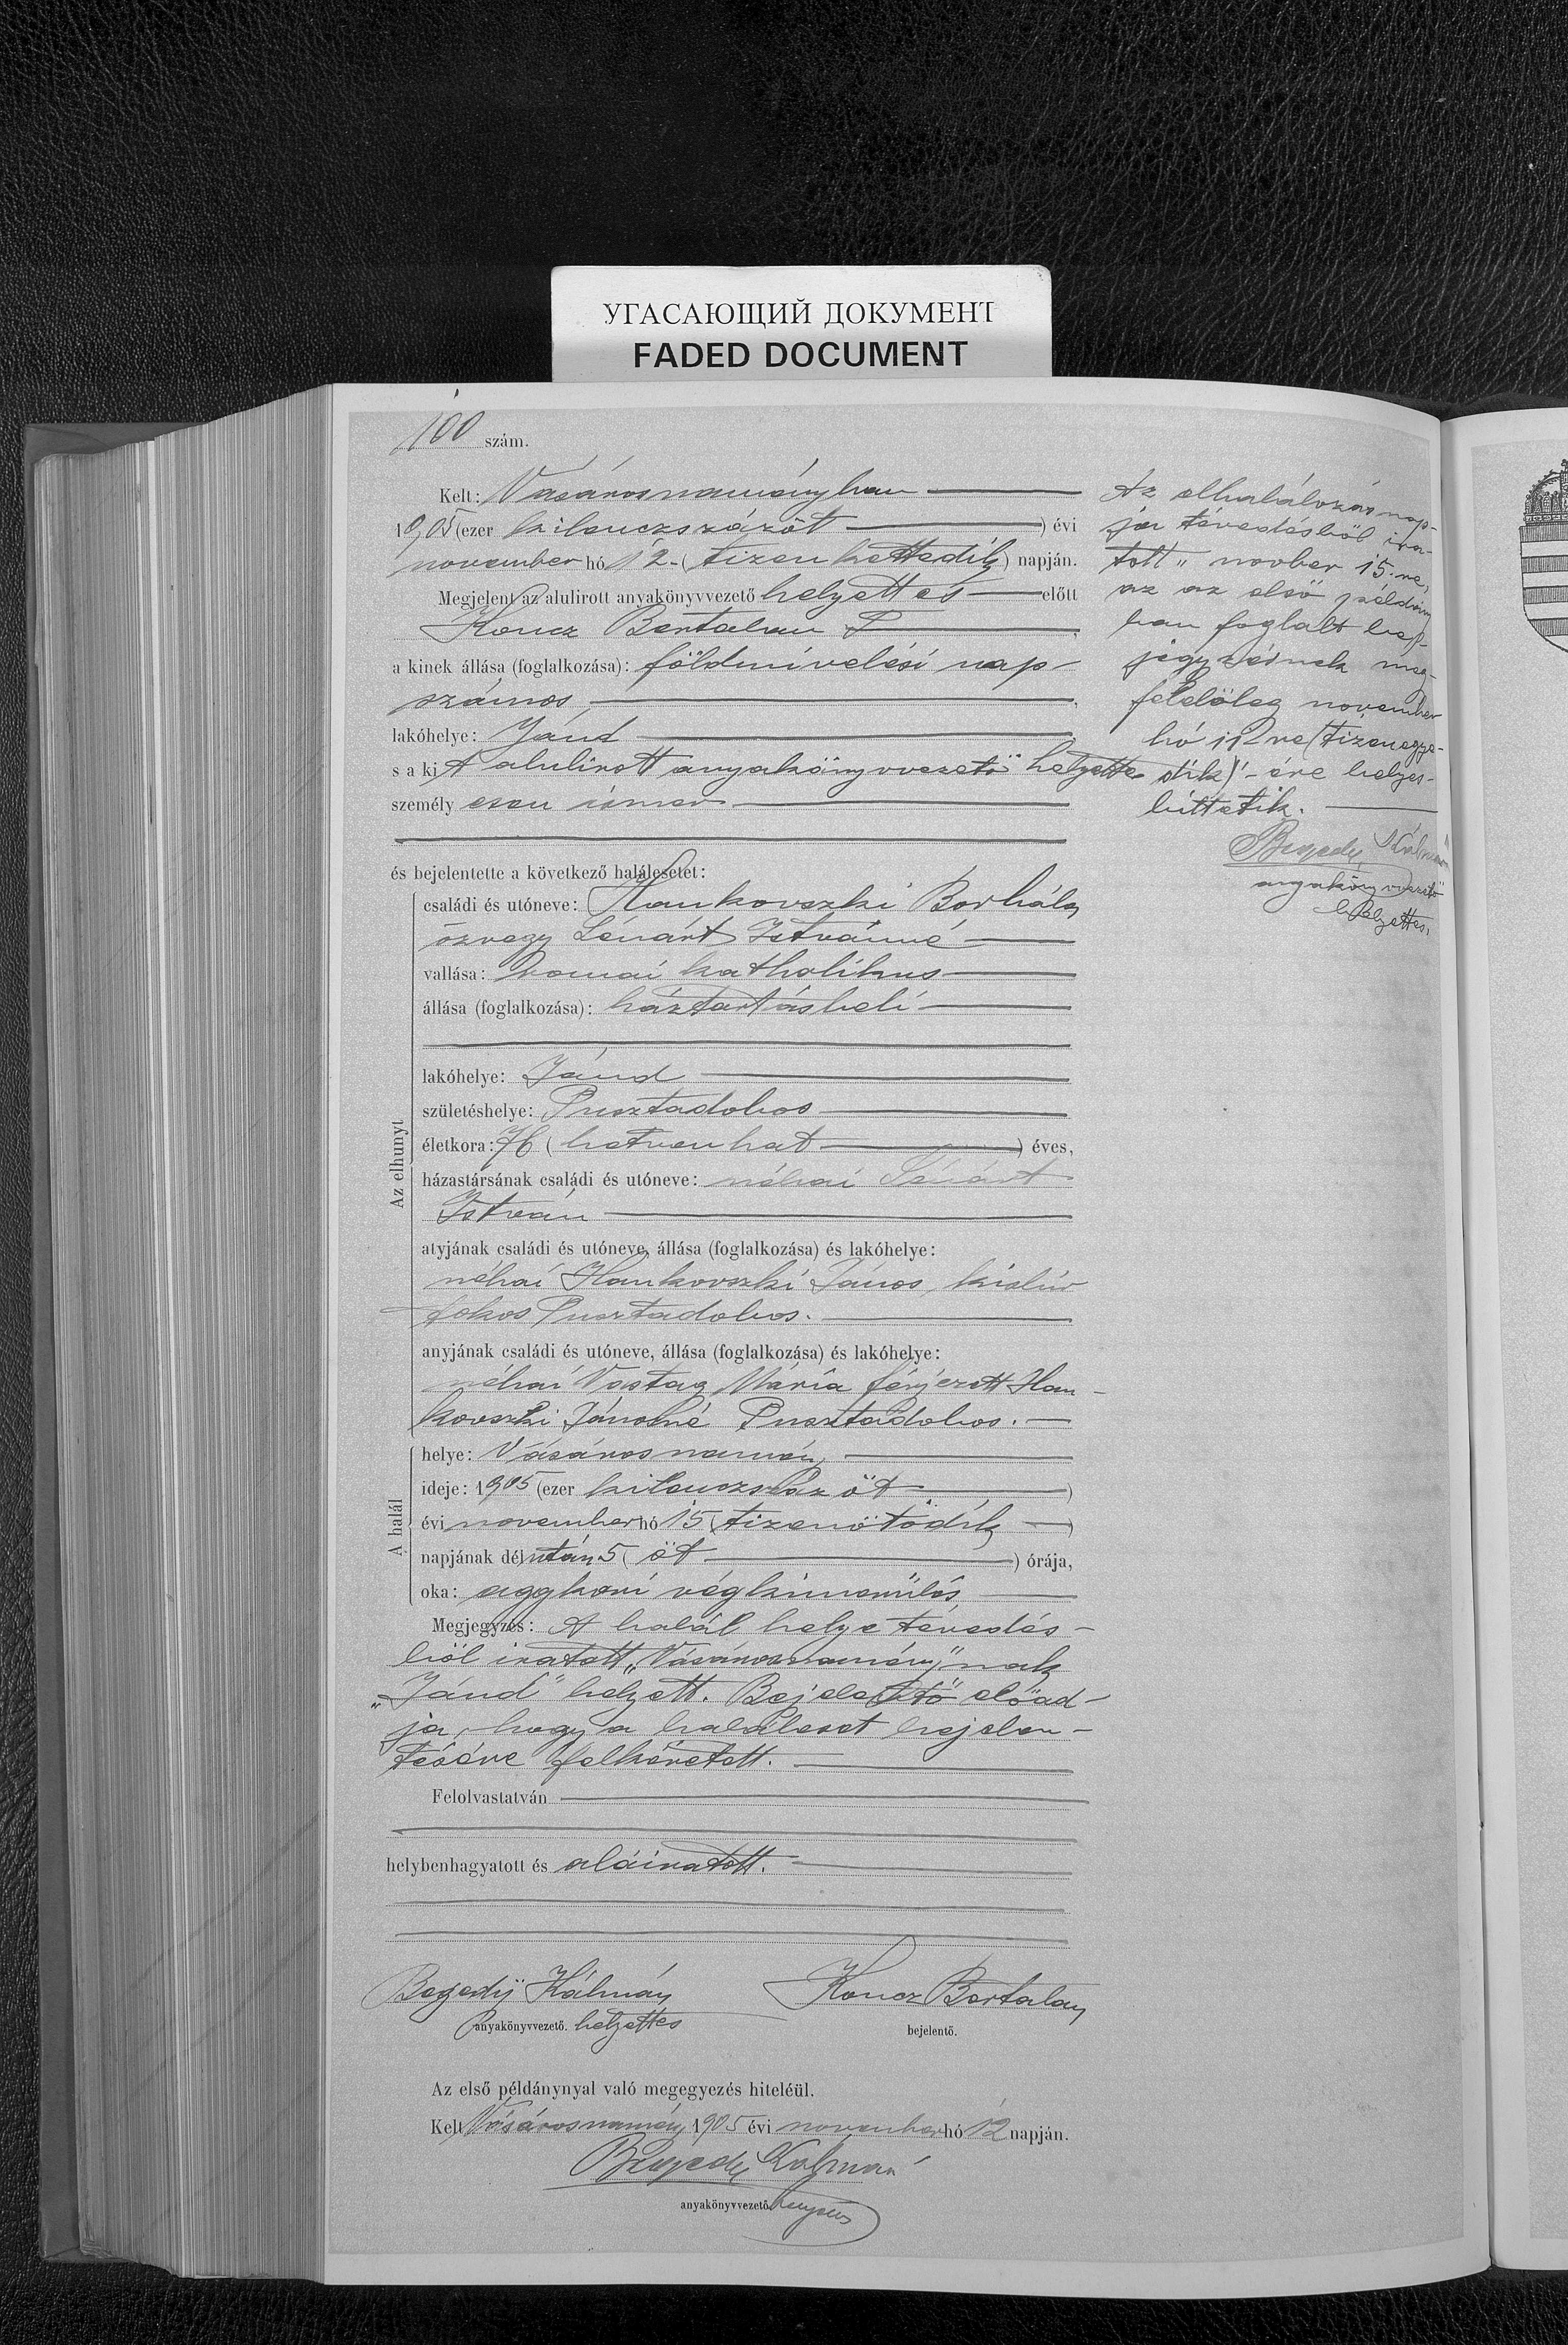 УГАСАЮЩИЙ ДОКУМЕНТ
FADED DOCUMENT
100 szám.
Kelt: Vásárosnaményban
1905 (ezer kilenczszázöt ) évi
november hó 12. (tizenkettedik) napján.
Megjelent az alulirott anyakönyvvezető helyettes előtt
Koncz Bertalan
a kinek állása (foglalkozása): földmívelési nap-
számos,
lakóhelye: Jánd
s a ki A alulirott anyakönyvvezető helyettes
személyesen ismer
és bejelentette a következő halálesetet:
Az elhunyt
családi és utóneve: Hankovszki Borbála
özvegy Lénárt Istvánné
vallása: romai katholikus
állása (foglalkozása): háztartásbeli
lakóhelye: Jánd
születéshelye: Pusztadobos
életkora: 76 (hetvenhat ) éves,
házastársának családi és utóneve: néhai Lénárt
István
atyjának családi és utóneve, állása (foglalkozása) és lakóhelye:
néhai Hankovszki János, kisbir-
tokos Pusztadobos.
anyjának családi és utóneve, állása (foglalkozása) és lakóhelye:
néhai Vostag Mária férjezett Han-
kovszki Jánosné Pusztadobos.
A halál
helye: Vásárosnamény
ideje: 1905 (ezer kilenczszáz öt )
évi november hó 15 (tizenötödik )
napjának délután 5 (öt ) órája,
oka: aggkori végkimerülés
Megjegyzés: A halál helye tévedés-
ből iratott „Vásárosnamény"nak
„Jánd" helyett. Bejelentő előad-
ja, hogy a haláleset bejelen-
tésére felkéretett.
Felolvastatván
helybenhagyatott és aláiratott.
Begedÿ Kálmán
Koncz Bertalan
anyakönyvvezető. helyettes
bejelentő.
Az első példánynyal való megegyezés hiteléül.
Kelt Vásárosnamény 1905 évi november hó 12 napján.
Kálmán
anyakönyvvezető helyettes
Az elhalálozás nap-
ja tévedésből ira-
tott „ novber 15.re,
az az első példány
ban foglalt bej-
jegyzésnek meg-
felelőleg november
hó 11 re (tizenegye-
dik) - ére helyes-
bittetik.
Kálmán
anyakönyvvezető
helyettes.